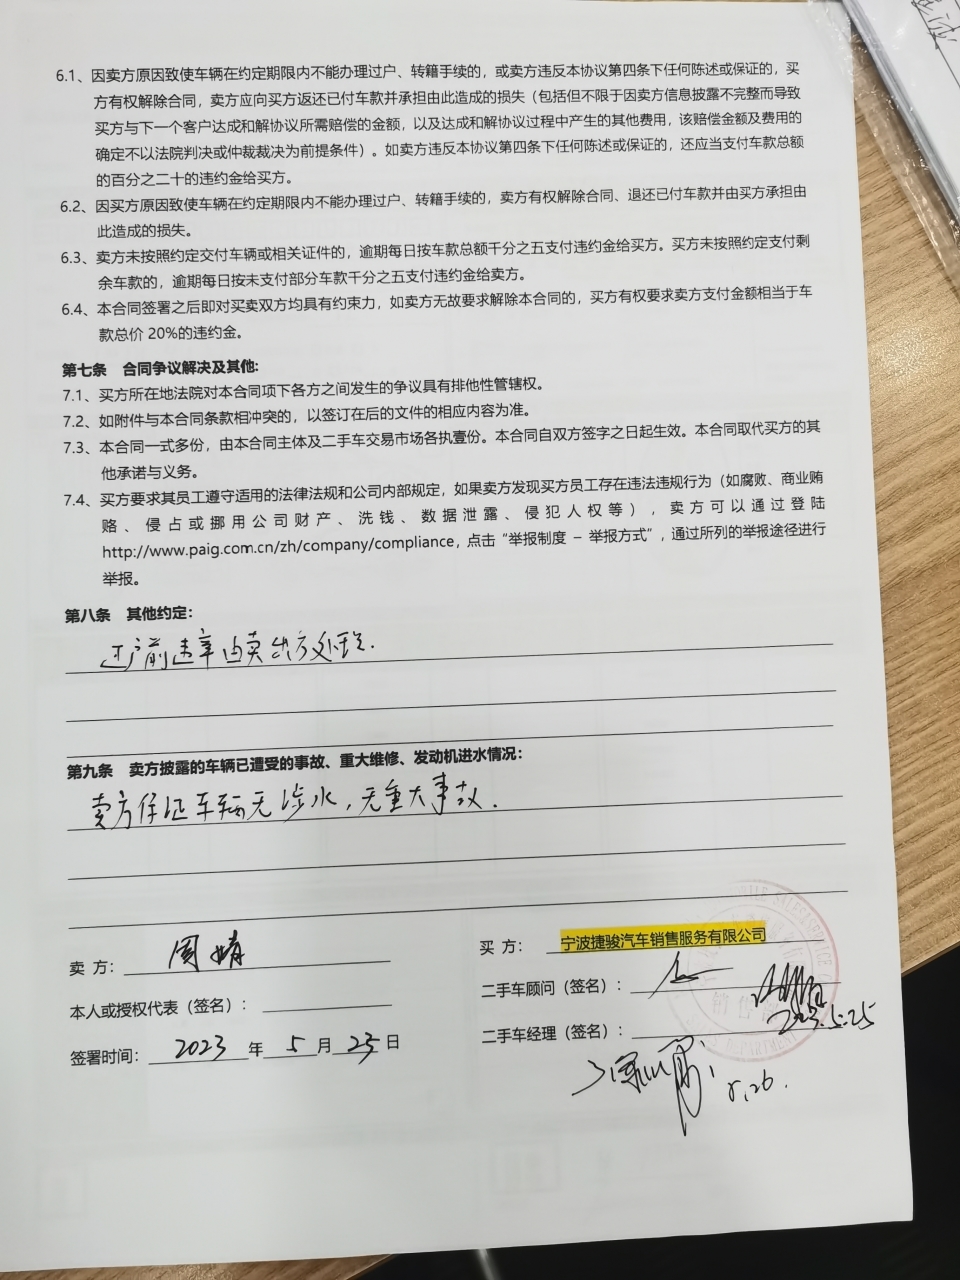 6.1、因卖方原因致使车辆在约定期限内不能办理过户、转籍手续的，或卖方违反本协议第四条下任何陈述或保证的，买
方有权解除合同，卖方应向买方返还已付车款并承担由此造成的损失（包括但不限于因卖方信息披露不完整而导致
买方与下一个客户达成和解协议所需赔偿的金额，以及达成和解协议过程中产生的其他费用，该赔偿金额及费用的
确定不以法院判决或仲裁裁决为前提条件）。如卖方违反本协议第四条下任何陈述或保证的，还应当支付车款总额
的百分之二十的违约金给买方。
6.2、因买方原因致使车辆在约定期限内不能办理过户、转籍手续的，卖方有权解除合同、退还已付车款并由买方承担由
此造成的损失。
6.3、卖方未按照约定交付车辆或相关证件的，逾期每日按车款总额千分之五支付违约金给买方。买方未按照约定支付剩
余车款的，逾期每日按未支付部分车款千分之五支付违约金给卖方。
6.4、本合同签署之后即对买卖双方均具有约束力，如卖方无故要求解除本合同的，买方有权要求卖方支付金额相当于车
款总价 20%的违约金。
第七条 合同争议解决及其他:
7.1、买方所在地法院对本合同项下各方之间发生的争议具有排他性管辖权。
7.2、如附件与本合同条款相冲突的，以签订在后的文件的相应内容为准。
7.3、本合同一式多份，由本合同主体及二手车交易市场各执壹份。本合同自双方签字之日起生效。本合同取代买方的其
他承诺与义务。
7.4、买方要求其员工遵守适用的法律法规和公司内部规定，如果卖方发现买方员工存在违法违规行为（如腐败、商业贿
赂、侵占或挪用公司财产、洗钱、数据泄露、侵犯人权等），卖方可以通过登陆
http://www.paig.com.cn/zh/company/compliance，点击“举报制度 – 举报方式”，通过所列的举报途径进行
举报。
第八条 其他约定：
过户前违章由卖出方处理.
第九条 卖方披露的车辆已遭受的事故、重大维修、发动机进水情况：
卖方保证车辆无涉水，无重大事故.
卖 方： 周婧
买 方： 宁波捷骏汽车销售服务有限公司
本人或授权代表（签名）：
二手车顾问（签名）：
二手车经理（签名）： 2023.5.25
签署时间： 2023 年 5 月 25 日
5.26.